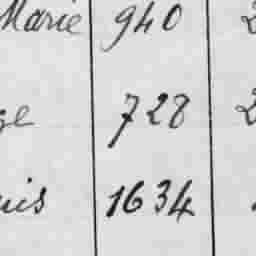 Marie 940 2
ge 728 2
uis 1634